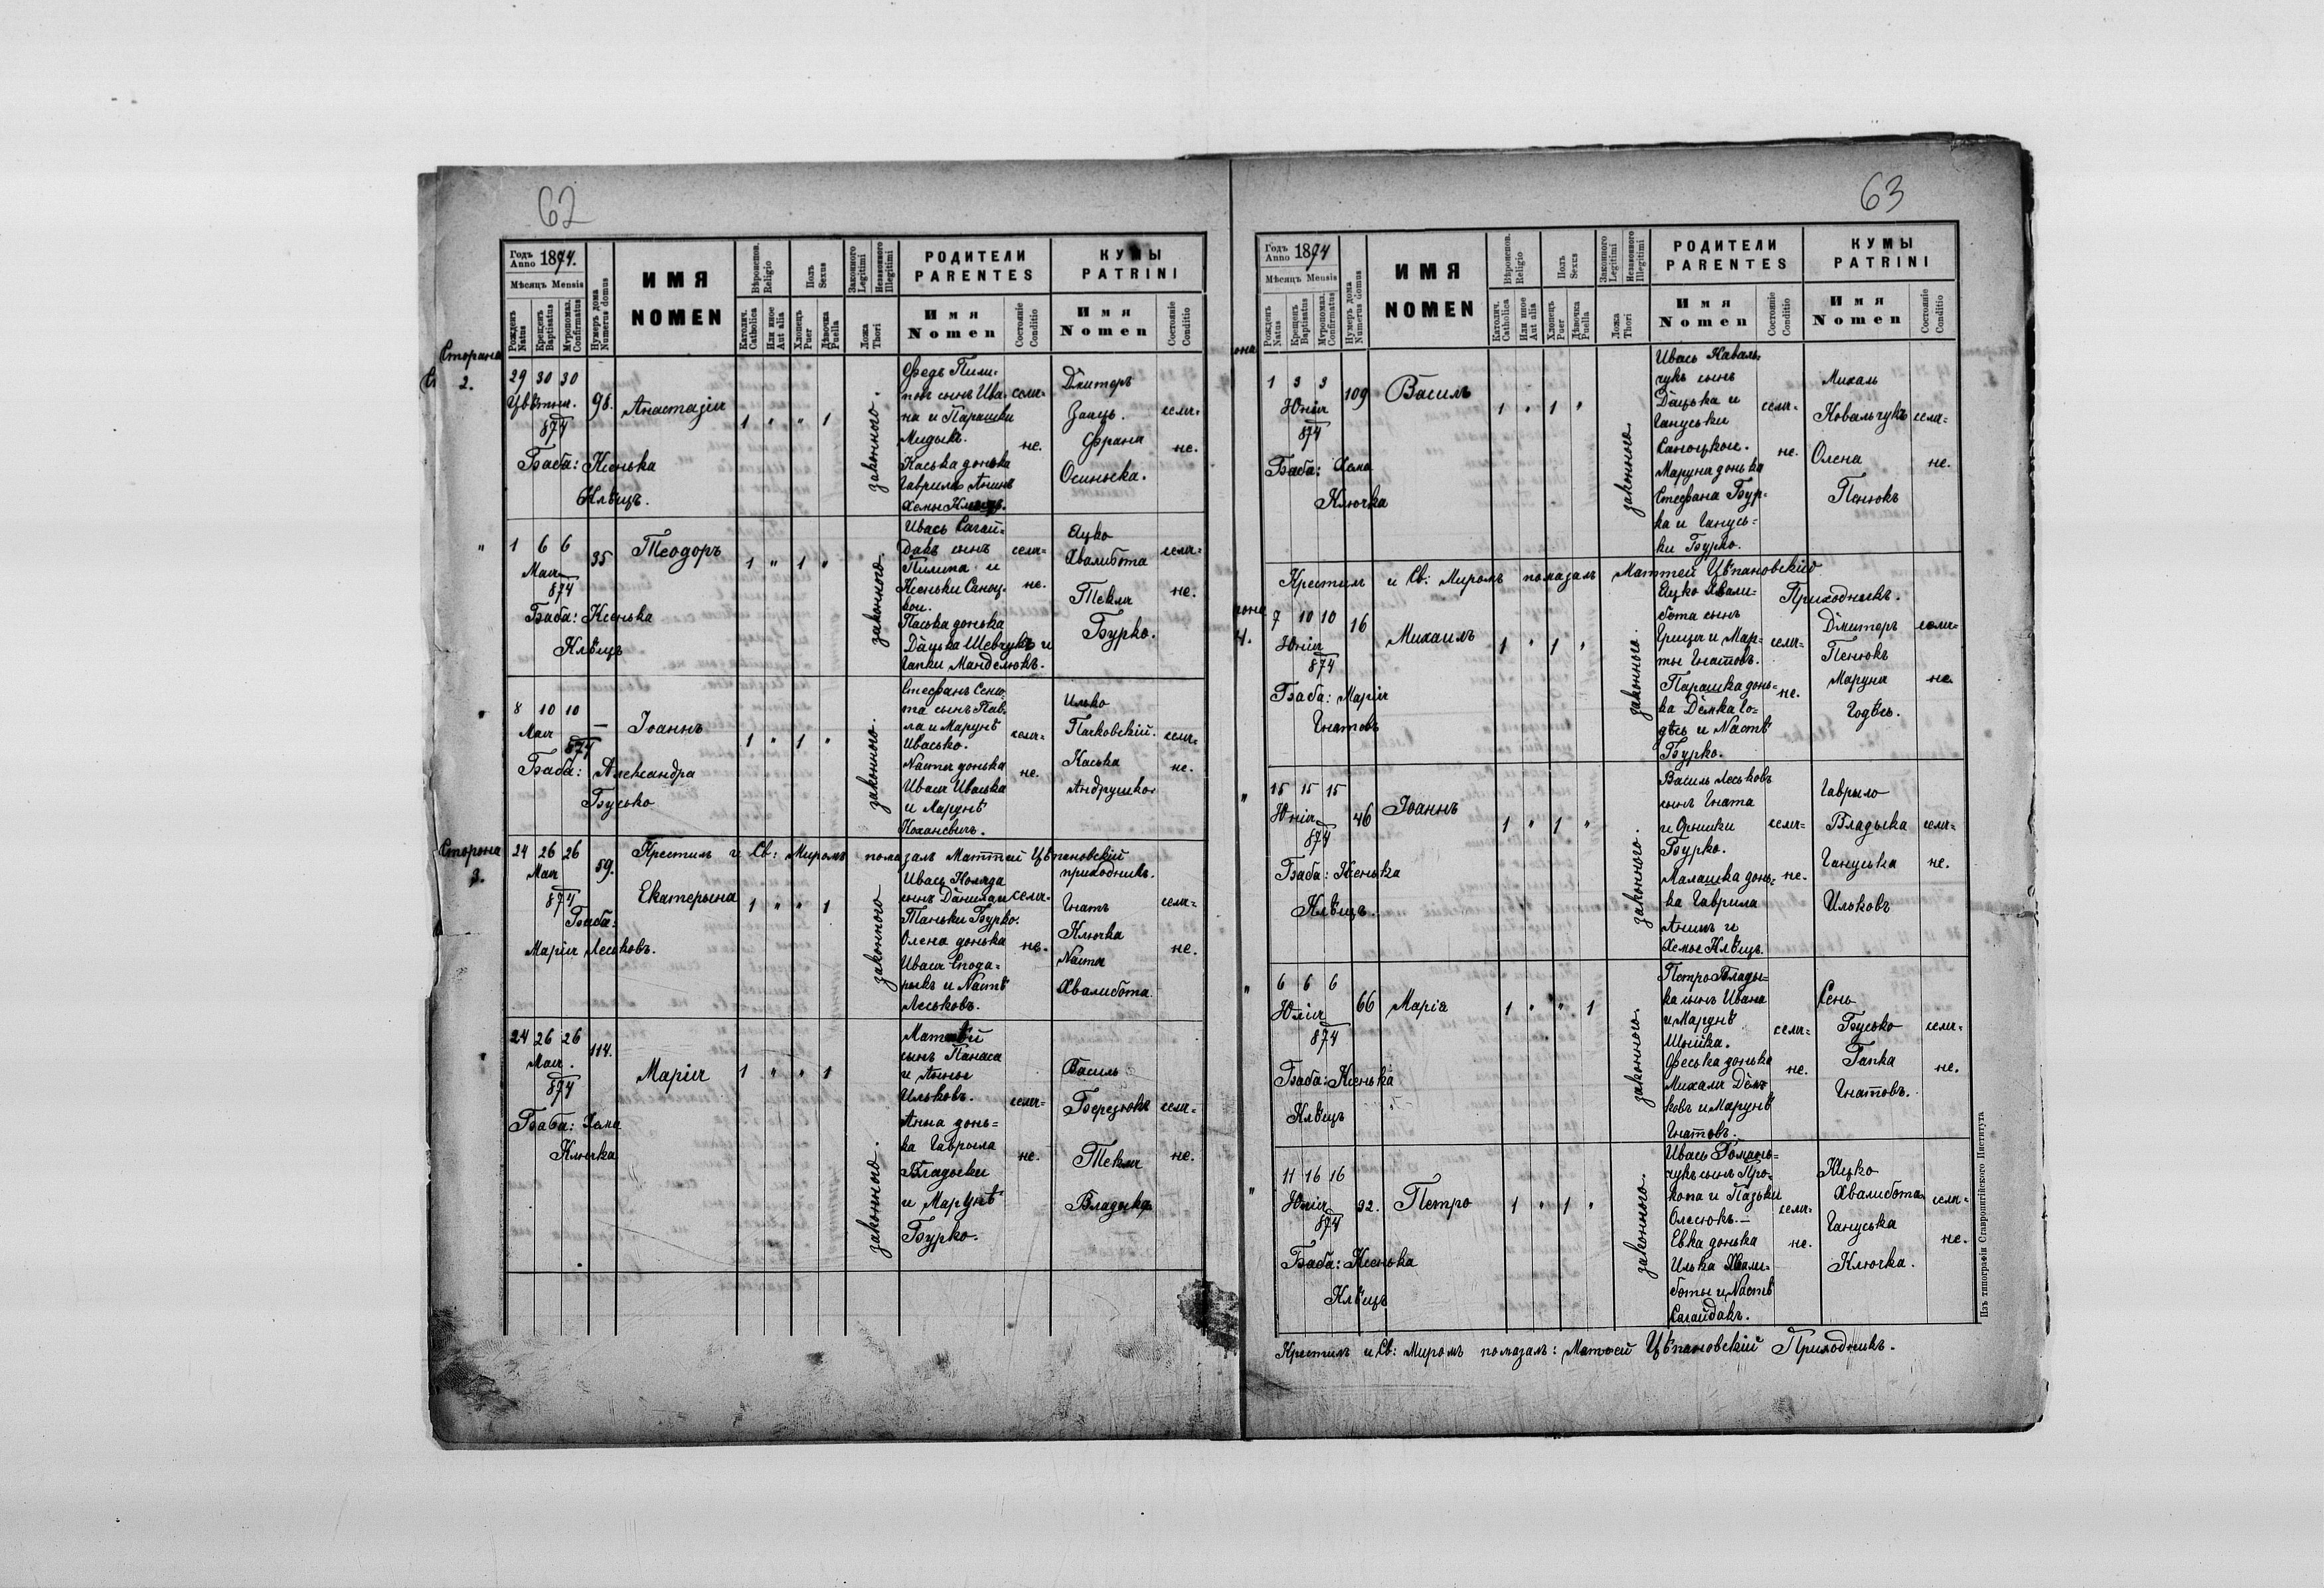 62
Годъ Anno 1874.
Мѣсяцъ Mensis
Рожденъ Natus
Крещенъ Baptisatus
Муропомаз. Confirmatus
Нумеръ дома Numerus domus
ИМЯ
NOMEN
Вѣроисповѣд. Religio
Католич. Catholica
Или иное Aut alia
Полъ Sexus
Хлопець Puer
Дѣвочка Puella
Законного Legitimi
Незаконного Illegitimi
Ложа Thori
РОДИТЕЛИ
PARENTES
Имя
Nomen
Состояніе Conditio
КУМЫ
PATRINI
Имя
Nomen
Состояніе Conditio
Сторона
2.
29 30 30
Цвѣтня.
874
98.
Анастазія
1 " " 1
законного.
Федь Пили-
сынъ Ива-
на и Парашки
Мидыкъ.
Каська донька
Гаврила Анинъ
селя-
не.
Дмитеръ
Заяць.
Франа
Осинська.
селя-
не.
Баба: Ксенька
Клѣщъ.
"
1 6 6
Мая
874
35
Теодоръ
1 " 1 "
законного.
Ивась Сагай-
дакъ сынъ
Пилипа и
Ксеньки Саноц-
кои.
Паська донька
Дацька Шевчукъ и
Гапки Манделюкъ.
селя-
не.
Яцко
Хвалибота
Текля
Бурко.
селя-
не.
Баба: Ксенька
Клѣщъ
"
8 10 10
Мая
874
—
Іоаннъ
1 " 1 "
законного.
Стефанъ Сено-
та сынъ Пав-
ла и Марунѣ
Ивасько.
Настя донька
Ивася Иваська
и Марунѣ
Коханевичъ.
селя-
не.
Илько
Пачковскій.
Каська
Андрушко.
селя-
не.
Баба: Александра
Бусько
Сторона
3.
Крестилъ и Св: Миромъ помазалъ Маттей Цѣпановскій
приходникъ.
24 26 26
Мая
874
59.
Екатерына
1 " " 1
законного
Ивась Коляда
сынъ Данила и
Таньки Бурко.
Олена донька
Ивася Спода-
рыкъ и Настѣ
Леськовъ.
селя-
не.
Гнатъ
Ключка
Настя
Хвалибота.
селя-
не.
Баба:
Марія Леськовъ.
24 26 26
Мая.
874
114.
Марія
1 " " 1
законного.
Маттѣй
сынъ Панаса
и Анны
Ильковъ.
Анна донь-
ка Гаврыла
Владыки
и Марунѣ
Бурко.
селя-
не.
Василь
Березюкъ
Текля
Владыка
селя-
не.
Баба: Хема
Ключка
63
Годъ Anno 1874
Мѣсяцъ Mensis
Рожденъ Natus
Крещенъ Baptisatus
Муропомаз. Confirmatus
Нумеръ дома Numerus domus
ИМЯ
NOMEN
Вѣроисповѣд. Religio
Католич. Catholica
Или иное Aut alia
Полъ Sexus
Хлопець Puer
Дѣвочка Puella
Законного Legitimi
Незаконного Illegitimi
Ложа Thori
РОДИТЕЛИ
PARENTES
Имя
Nomen
Состояніе Conditio
КУМЫ
PATRINI
Имя
Nomen
Состояніе Conditio
1 3 3
Юнія
874
109
Василь
1 " 1 "
законного.
Ивась Коваль-
чукъ сынъ
Дацька и
Гануськи
Саноцкои.
Маруня донька
Стефана Бур-
ка и Гануcь-
ки Бурко.
селя-
не.
Михаль
Ковальчукъ
Олена
Пенюкъ
селя-
не.
Баба: Хема
Ключка
Крестилъ и Св: Миромъ помазалъ Маттей Цѣпановскій
Приходникъ.
4.
7 10 10
Юнія
874
16
Михаилъ
1 " 1 "
законного.
Яцко Хвали-
бота сынъ
Гриця и Мар-
ты Гнатовъ.
Парашка донь-
ка Демка Го-
дѣсь и Настѣ
Бурко.
селя-
не.
Дмитеръ
Пенюкъ
Маруня
Годѣсь.
селя-
не.
Баба: Марія
Гнатовъ
"
15 15 15
Юнія
874
46
Іоаннъ
1 " 1 "
законного.
Василь Леськовъ
сынъ Гната
и Орышки
Бурко.
Малашка донь-
ка Гаврила
Анинъ и
Хемы Клѣщъ.
селя-
не.
Гаврыло
Владыка
Гануська
Ильковъ
селя-
не.
Баба: Ксенька
Клѣщъ.
"
6 6 6
Юлія
874
66
Марія
1 " " 1
законного.
Петро Влады-
ка сынъ Ивана
и Марунѣ
Феська донька
Михаля Дем-
ковъ и Марунѣ
Гнатовъ.
селя-
не.
Сень
Бусько
Гапка
Гнатовъ.
селя-
не.
Баба: Ксенька
Клѣщъ
"
11 16 16
874
92.
Петро
1 " 1 "
законного.
Ивась Романь-
чукъ сынъ Про-
копа и Пазьки
Олесюкъ.—
Евка донька
Илька Хвали-
боты и Настѣ
Сагайдакъ.
селя-
не.
Юцко
Хвалибота
Гануська
Ключка.
селя-
не.
Баба: Ксенька
Клѣщъ
Крестилъ и Св: Миромъ помазалъ: Маттей Цѣпановскій Приходникъ.
Изъ типографіи Ставропигійского Института